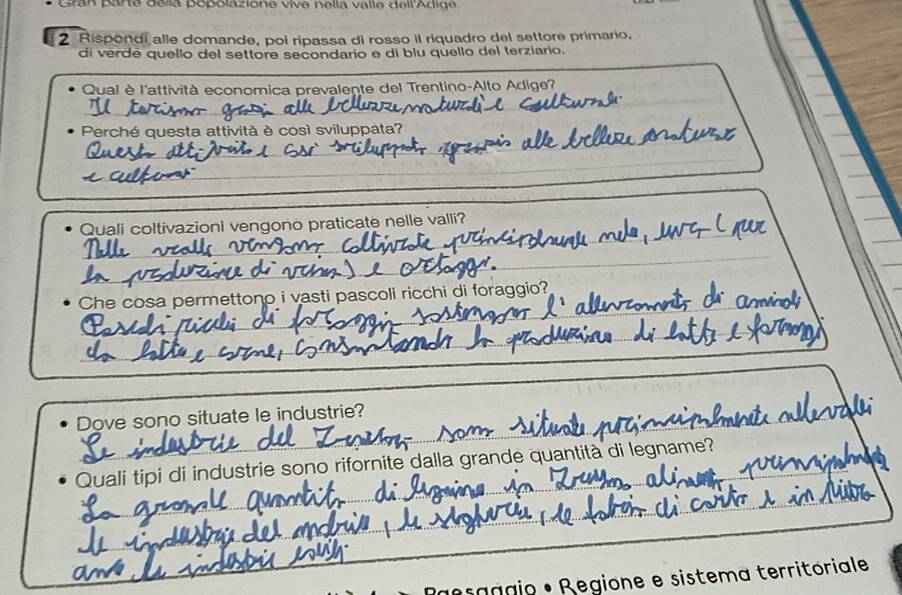 Gran parte della popolazione vive nella valle dell'Adige
2 Rispondi alle domande, poi ripassa di rosso il riquadro del settore primario,
di verde quello del settore secondario e di blu quello del terziario.
• Qual è l'attività economica prevalente del Trentino-Alto Adige?
Il turismo grazie alle bellezze naturali e culturali
• Perché questa attività è così sviluppata?
Questa attività è così sviluppata grazie alle bellezze naturali
e culturali
• Quali coltivazioni vengono praticate nelle valli?
Nelle valli vengono coltivate principalmente mele, uva (per
la produzione di vino) e ortaggi.
• Che cosa permettono i vasti pascoli ricchi di foraggio?
Pascoli ricchi di foraggio sostengono l'allevamento di animali
da latte e carne, consentendo la produzione di latte e formaggi
• Dove sono situate le industrie?
Le industrie del sono situate principalmente nelle valli
• Quali tipi di industrie sono rifornite dalla grande quantità di legname?
La grande quantità di legname in principalmente
le industrie del mobile, le segherie, le di carta e in
anche le industrie
Paesaggio • Regione e sistema territoriale